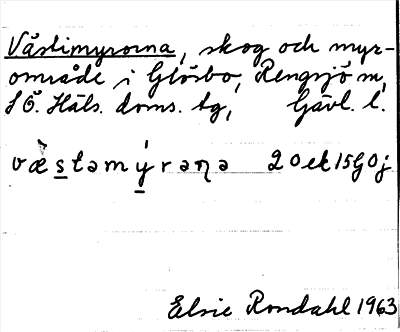 Västimyrorna, skog och myr-
område i Glösbo, Rengsjö sn,
S Ö. Häls. doms. tg, Gävl. l.
væ̀stəmýrəṇa 20ek15G0j
Elsie Rondahl 1963